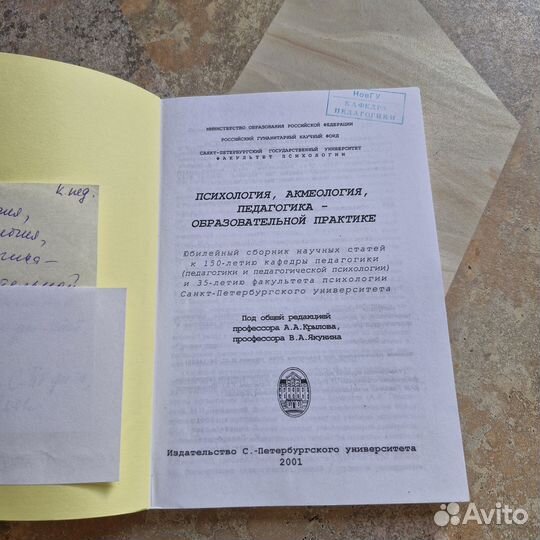 К пед.
НовГУ
КАФЕДРА
ПЕДАГОГИКИ
МИНИСТЕРСТВО ОБРАЗОВАНИЯ РОССИЙСКОЙ ФЕДЕРАЦИИ
РОССИЙСКИЙ ГУМАНИТАРНЫЙ НАУЧНЫЙ ФОНД
САНКТ-ПЕТЕРБУРГСКИЙ ГОСУДАРСТВЕННЫЙ УНИВЕРСИТЕТ
ФАКУЛЬТЕТ ПСИХОЛОГИИ
ПСИХОЛОГИЯ, АКМЕОЛОГИЯ,
ПЕДАГОГИКА –
ОБРАЗОВАТЕЛЬНОЙ ПРАКТИКЕ
Юбилейный сборник научных статей
к 150-летию кафедры педагогики
(педагогики и педагогической психологии)
и 35-летию факультета психологии
Санкт-Петербургского университета
Под общей редакцией
профессора А.А.Крылова,
проофессора В.А.Якунина
Издательство С.-Петербургского университета
2001
Avito